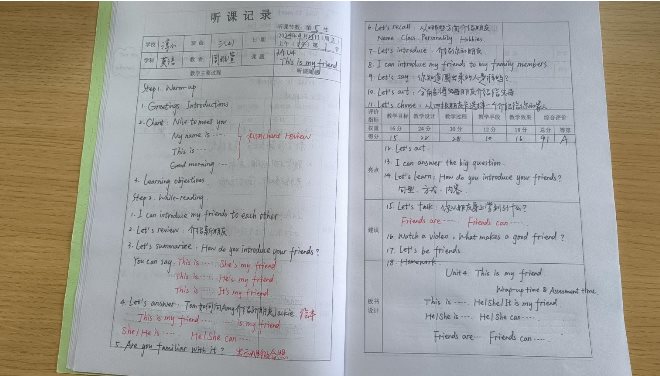 听课记录
听课节数:第 5 节
学校 班级 三(4) 日期
学科 英语 教者 课题 Unit 4 This is my friend
教学主要过程
Step 1. Warm-up
1. Greetings, Introductions
2. Chant: Nice to meet you
My name is ....
This is ....
Good morning ....
review
4. Learning objectives
Step 2. While-reading
1. I can introduce my friends to each other
2. Let's review: 介绍新朋友
3. Let's summarize: How do you introduce your friends?
You can say This is ..... She's my friend
This is ..... He's my friend
This is ..... It's my friend
4. Let's answer:
This is my friend ..... is my friend
She/He is .... He/She can ....
5. Are you familiar with it?
6. Let's recall:
Name Class Personality Hobbies
7. Let's introduce: 介绍你的朋友
8. I can introduce my friends to my family members
9. Let's say:
10. Let's act:
11. Let's choose:
评价指标 教学目标 教学设计 教学过程 教学手段 教学效果 综合评价
权重 16分 26分 30分 12分 16分 总分 等第
得分 15 28 10 16 91 A
亮点
12. Let's act.
13. I can answer the big question.
14. Let's learn: How do you introduce your friends?
句型、方式、内容
建议
15. Let's talk:
Friends are .... Friends can ....
16. Watch a video: What makes a good friend?
17. Let's be friends
18. Homework
板书设计
Unit 4 This is my friend
Wrap-up time & Assessment time
This is .... He/She/It is my friend
He/She is .... He/She can ....
Friends are .. Friends can ....